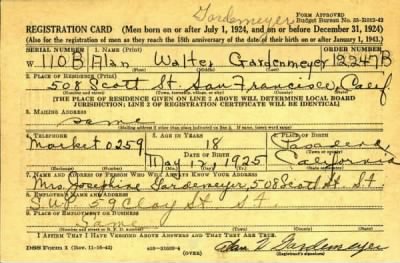 Gordemeyer
FORM APPROVED
Budget Bureau No. 33-R012-42
REGISTRATION CARD (Men born on or after July 1, 1924, and on or before December 31, 1924)
(Also for the registration of men as they reach the 18th anniversary of the date of their birth on or after January 1, 1943.)
SERIAL NUMBER 1. NAME (Print) ORDER NUMBER
W 110B Alan Walter Gardenmeyer 12247B
2. PLACE OF RESIDENCE (Print)
508 Scott St San Francisco, Calif.
[THE PLACE OF RESIDENCE GIVEN ON LINE 2 ABOVE WILL DETERMINE LOCAL BOARD
JURISDICTION; LINE 2 OF REGISTRATION CERTIFICATE WILL BE IDENTICAL]
3. MAILING ADDRESS
Same
4. TELEPHONE 5. AGE IN YEARS 6. PLACE OF BIRTH
Market 0259 18 Pasadena
DATE OF BIRTH
May 12, 1925 California
7. NAME AND ADDRESS OF PERSON WHO WILL ALWAYS KNOW YOUR ADDRESS
Mrs. Josephine Gordemeyer, 508 Scott St. S.F.
8. EMPLOYER'S NAME AND ADDRESS
59 Clay St
9. PLACE OF EMPLOYMENT OR BUSINESS
Same
I AFFIRM THAT I HAVE VERIFIED ABOVE ANSWERS AND THAT THEY ARE TRUE.
DSS Form 1 (Rev. 11-16-42) (OVER) Alan W Gardemeyer
(Registrant's signature)